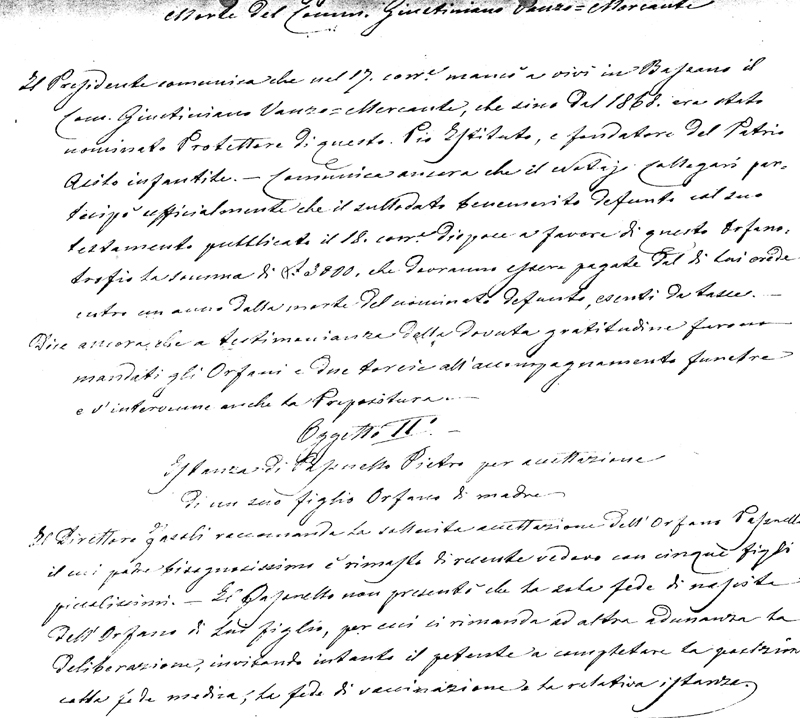 Morte del Comm. Giustiniano Vanzo=Mercante
Il Presidente comunica che nel 17. corre. mancò a vivi in Bassano il
Com. Giustiniano Vanzo=Mercante, che sino dal 1868. era stato
nominato Protettore di questo Pio Istituto, e fondatore del Patrio
Asilo infantile. — Comunica ancora che il Notaj. Collegari par-
tecipò ufficialmente che il sullodato benemerito defunto col suo
testamento pubblicato il 18. corre. dispose a favore di questo Orfano-
trofio la somma di £. 3000. che dovranno essere pagate dal di lui erede
entro un anno dalla morte del nominato defunto, esenti da tasse. —
Dice ancora che a testimonianza della dovuta gratitudine furono
mandati gli Orfani e due torcie all'accompagnamento funebre
e v'intervenne anche la Prepositura. —
Oggetto II°. —
Istanza di Passarello Pietro per accettazione
di un suo figlio Orfano di madre
Il Direttore raccomanda la sollecita accettazione dell'Orfano
il cui padre bisognosissimo è rimasto di recente vedovo con cinque figli
piccolissimi. — Il non presentò che la sola fede di nascita
dell'Orfano di lui figlio, per cui si rimanda ad altra adunanza la
deliberazione, invitando intanto il petente a completare la posizione
colla fede medica, la fede di vaccinazione e la relativa istanza.